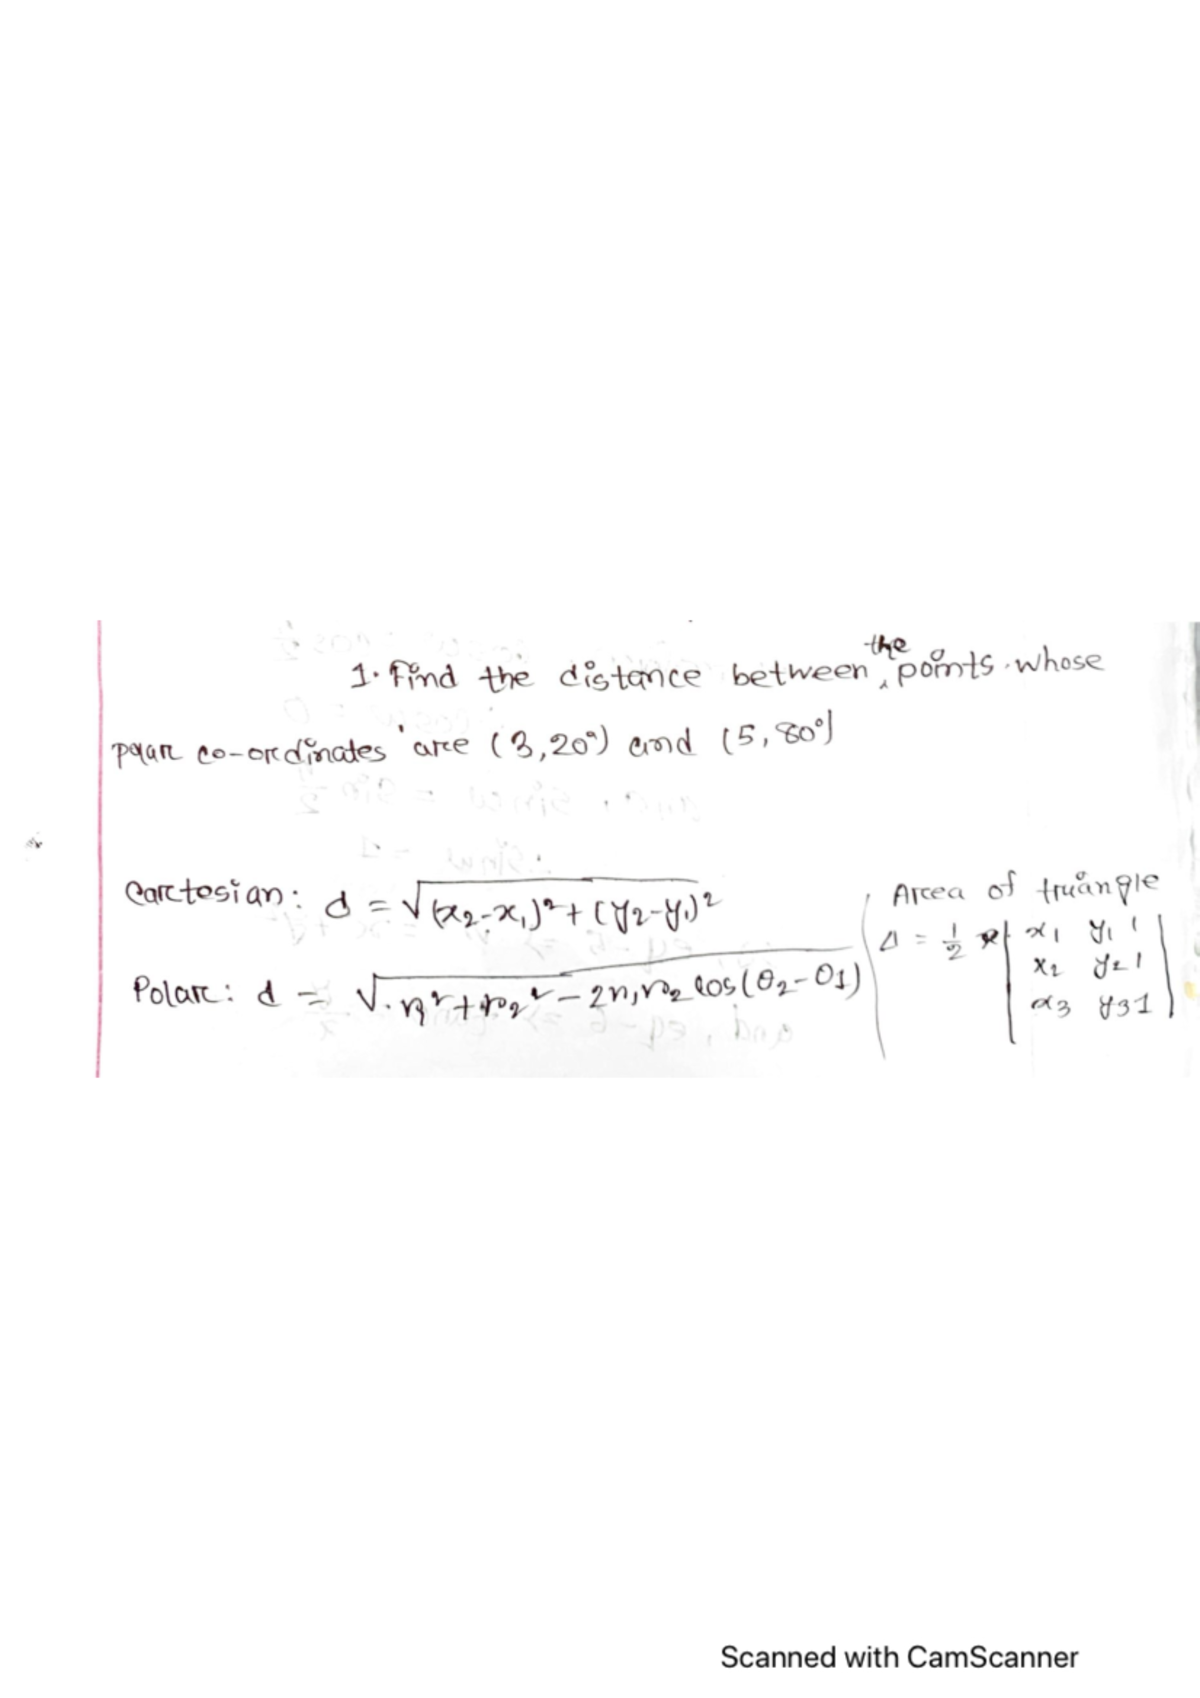 1. Find the distance between the points whose
polar co-ordinates are (3,20°) and (5,80°)
Cartesian: d = √(x₂-x₁)²+(y₂-y₁)²
Polar: d = √r₁²+r₂²-2r₁r₂ cos(θ₂-θ1)
Area of triangle
Δ = 1/2 | x₁ y₁ 1
x₂ y₂ 1
x3 y3 1 |
Scanned with CamScanner